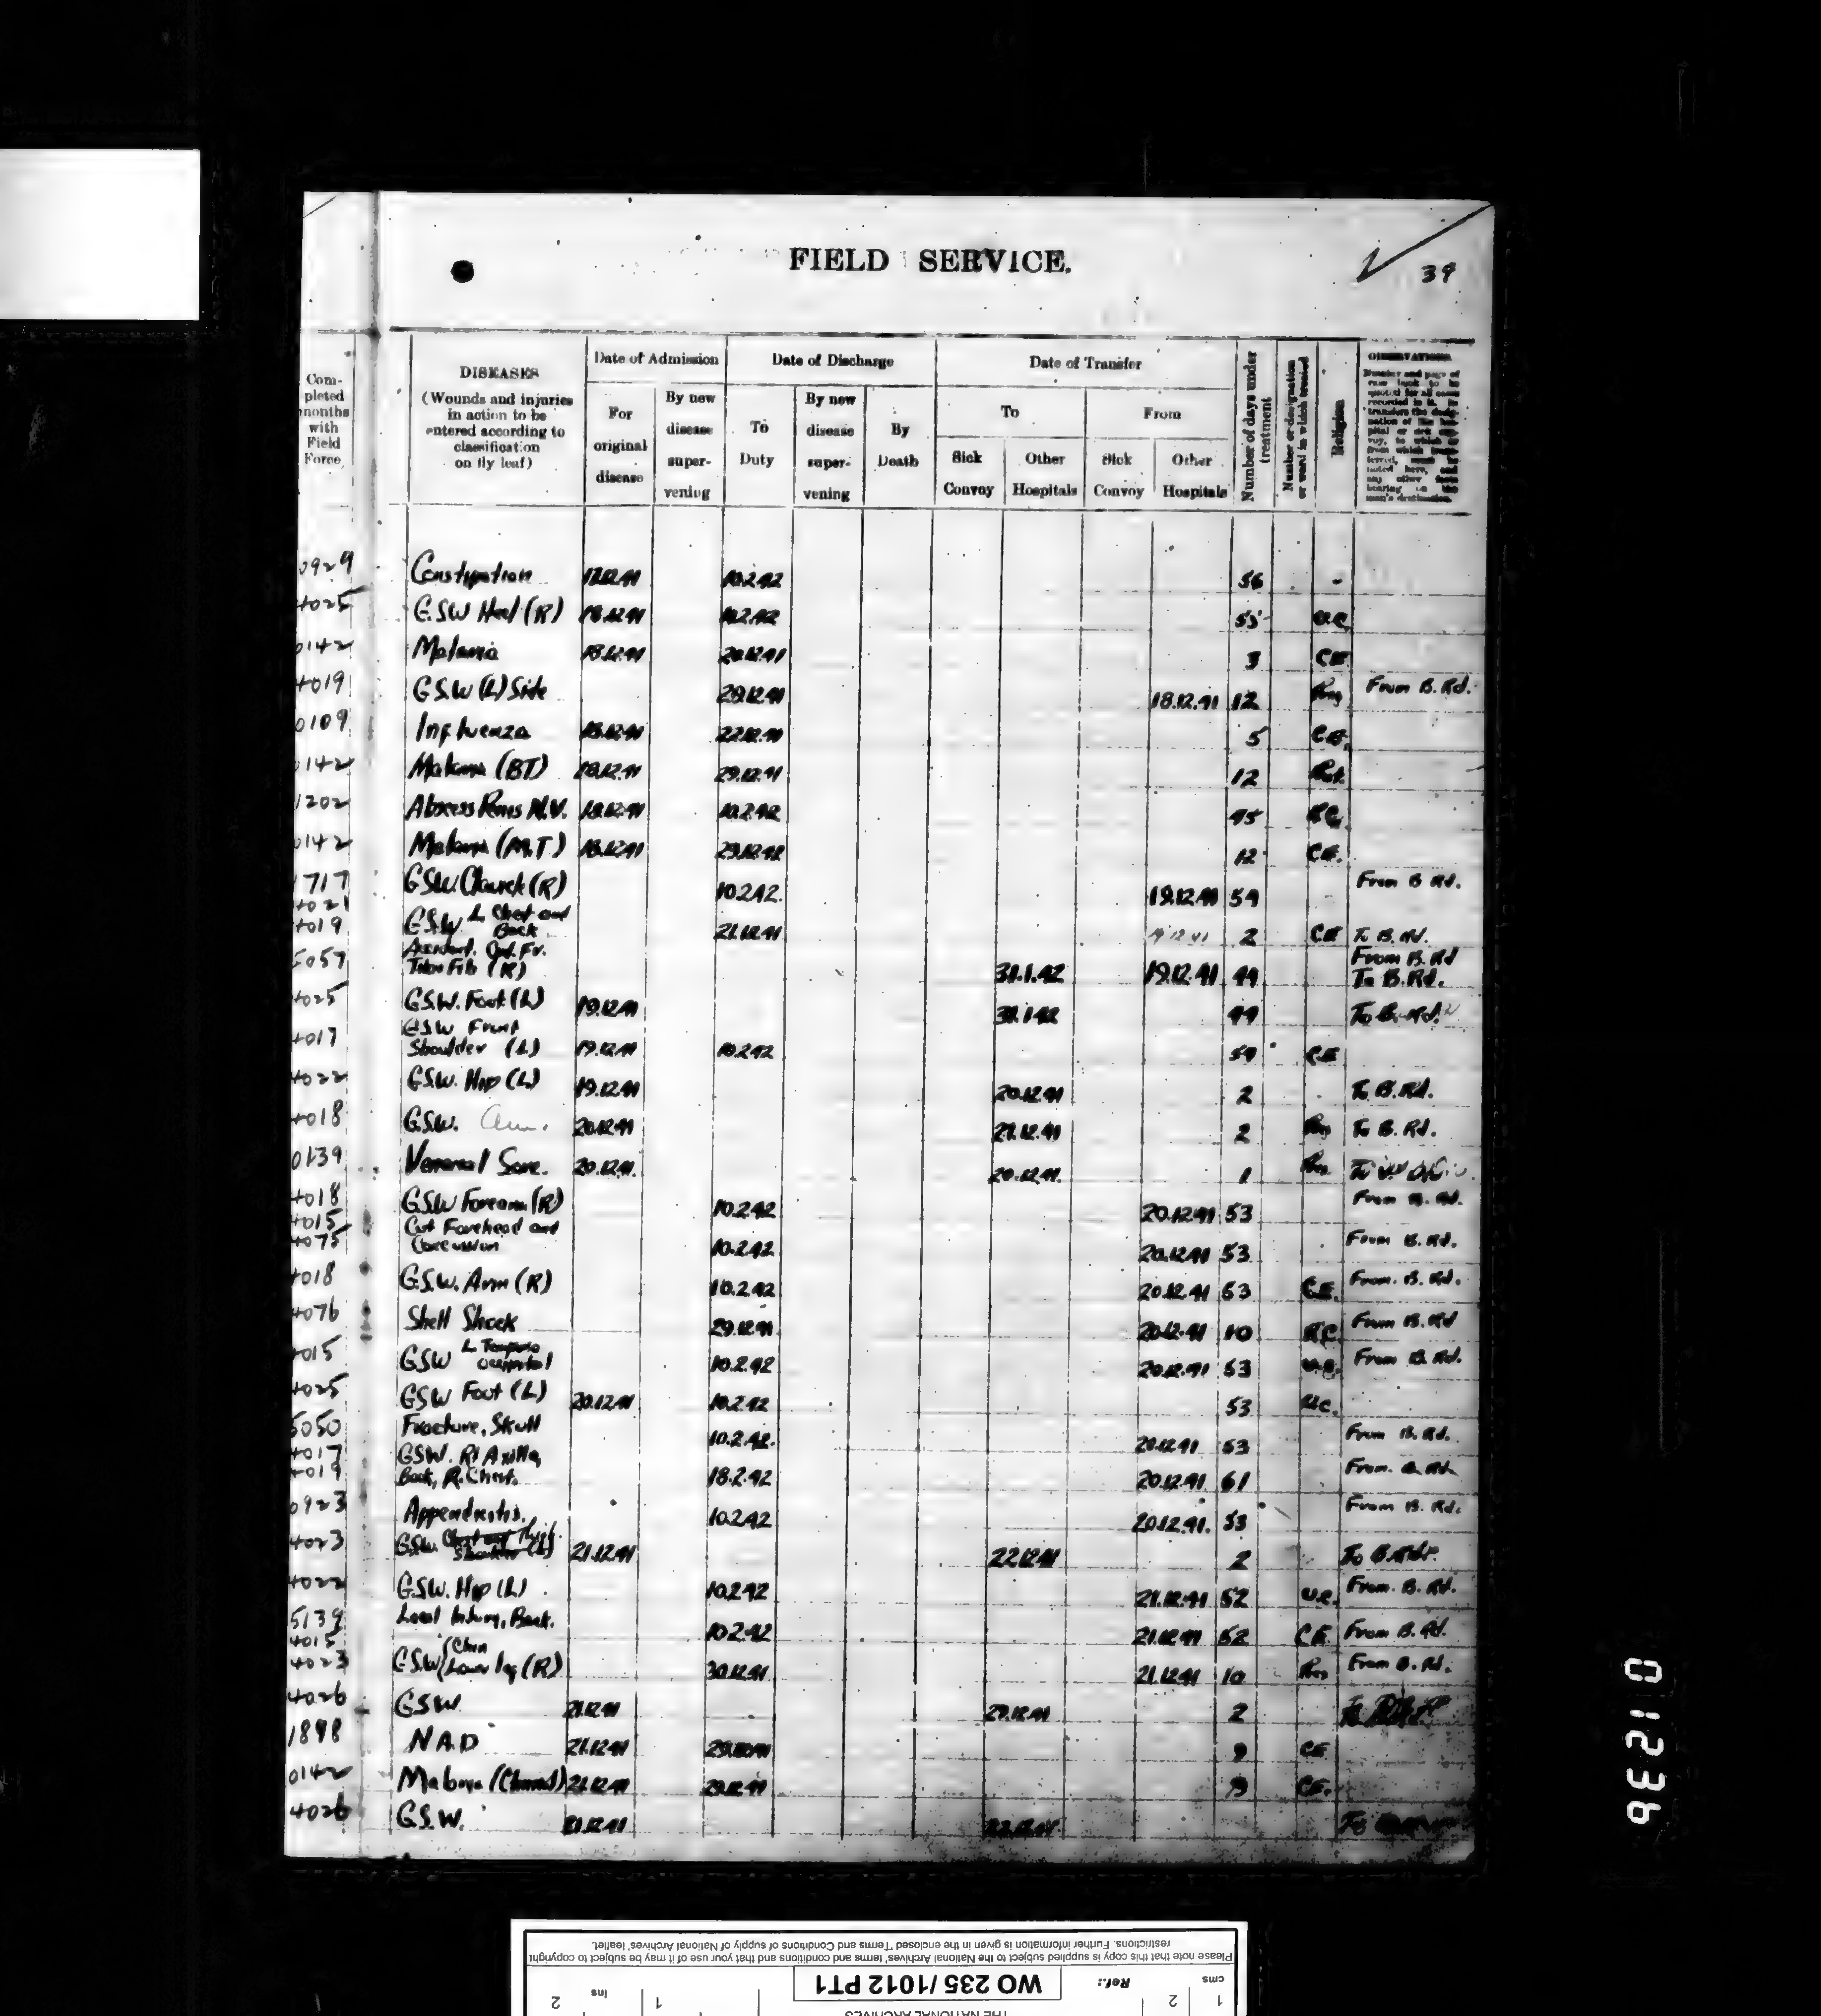 FIELD SERVICE.
39
Com-
pleted
months
with
Field
Force
DISEASES
(Wounds and injuries
in action to be
entered according to
classification
on fly leaf)
Date of Admission
For
original
disease
By new
disease
super-
vening
Date of Discharge
To
Duty
By new
disease
super-
vening
By
Death
Date of Transfer
To
From
Sick
Convoy
Other
Hospitals
Sick
Convoy
Other
Hospitals
Number of days under
treatment
Number or designation
or ward in which treated
Religion
OBSERVATIONS.
0929 Constipation 17.12.41 10.2.42 56 -
4025 G.S.W Heel (R) 18.12.41 10.2.42 55
0142 Malaria 18.12.41 20.12.41 3 CE
4019 G.S.W (L) Side 29.12.41 18.12.41 12 From B.Rd.
0109 Influenza 18.12.41 22.12.41 5 C.E.
0142 Malaria (BT) 18.12.41 29.12.41 12
1202 Abscess N.V. 18.12.41 10.2.42 45 R.C.
0142 Malaria (M.T) 18.12.41 29.12.41 12 CE.
1717 GSW. (R) 10.2.42. 19.12.41 54 From B Rd.
4021
4019 G.S.W. L. Chest and Back 21.12.41 19.12.41 2 CE To B.Rd.
5057 Accident. Fr. Tibia Fib (R) 31.1.42 19.12.41 44 From B.Rd To B.Rd.
4025 G.S.W. Foot (L) 19.12.41 31.1.42 44 To B.Rd.
4017 GSW Front Shoulder (L) 19.12.41 10.2.42 54 C.E
4022 G.S.W. Hip (L) 19.12.41 20.12.41 2 To B.Rd.
4018 G.S.W. Arm. 20.12.41 21.12.41 2 To B. Rd.
0139 Venereal Sore. 20.12.41. 20.12.41. 1
4018 GSW Forearm (R) 10.2.42 20.12.41 53 From B. Rd.
4015
4075 Cut Forehead and Concussion 10.2.42 20.12.41 53 From B. Rd.
4018 G.S.W. Arm (R) 10.2.42 20.12.41 53 C.E. From. B. Rd.
4076 Shell Shock 29.12.41 20.12.41 10 R.C. From B.Rd
4015 GSW L Temporo occipital 10.2.42 20.12.41 53 From B.Rd.
4025 GSW Foot (L) 20.12.41 10.2.42 53
5050 Fracture, Skull 10.2.42. 20.12.41 53 From B.Rd.
4017
4019 GSW. Rt Axilla, Back, R. Chest. 18.2.42 20.12.41. 61 From. B. Rd.
0923 Appendicitis. 10.2.42 20.12.41. 53 From B. Rd.
4023 G.S.W. Thigh (L) 21.12.41 22.12.41 2 To B.Rd.
4022 G.S.W. Hip (L) 10.2.42 21.12.41 52 From. B. Rd.
5139 Local Injury, Back. 10.2.42 21.12.41 52 CE From B. Rd.
4015
4023 G.S.W { Chin Lower leg (R) 30.12.41 21.12.41 10 From B. Rd.
4026 GSW 21.12.41 22.12.41 2
1898 N A D 21.12.41 29.12.41 9 CE
0142 Malaria (Clinical) 21.12.41 29.12.41 9 CE.
4026 G.S.W. 21.12.41 22.12.41
01236
Please note that this copy is supplied subject to the National Archives' terms and conditions and that your use of it may be subject to copyright
restrictions. Further information is given in the enclosed 'Terms and Conditions of supply of National Archives' leaflet.
cms 1 2
Ref.: WO 235/1012 PT1
ins 1 2
THE NATIONAL ARCHIVES